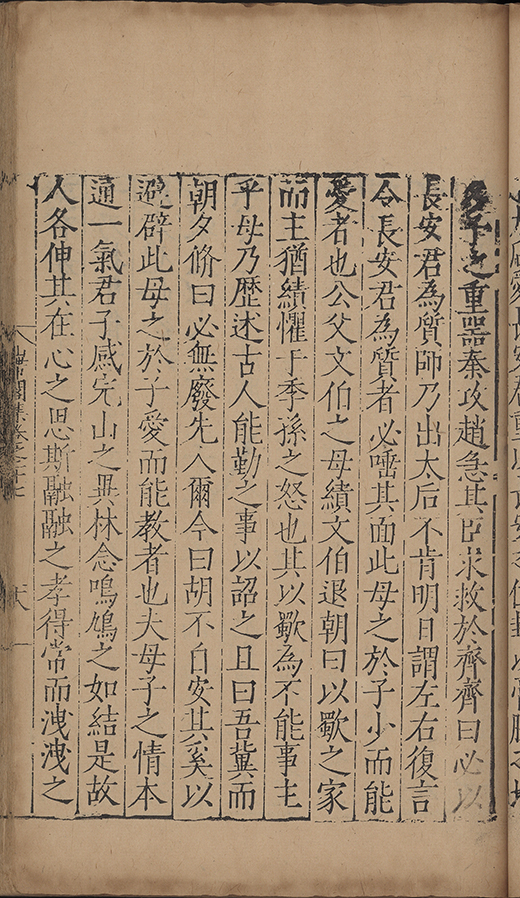 予之重器秦攻趙急其臣求救於齊齊曰必以
長安君為質師乃出太后不肯明日謂左右復言
令長安君為質者必唾其面此母之於子少而能
愛者也公父文伯之母績文伯退朝曰以歜之家
而主猶績懼于季孫之怒也其以歜為不能事主
乎母乃歴述古人能勤之事以詔之且曰吾冀而
朝夕脩曰必無廢先人爾今曰胡不自安其奚以
避辟此母之於子愛而能教者也夫母子之情本
通一氣君子感完山之異林念鳴鳩之如結是故
人各伸其在心之思斯融融之孝得常而洩洩之